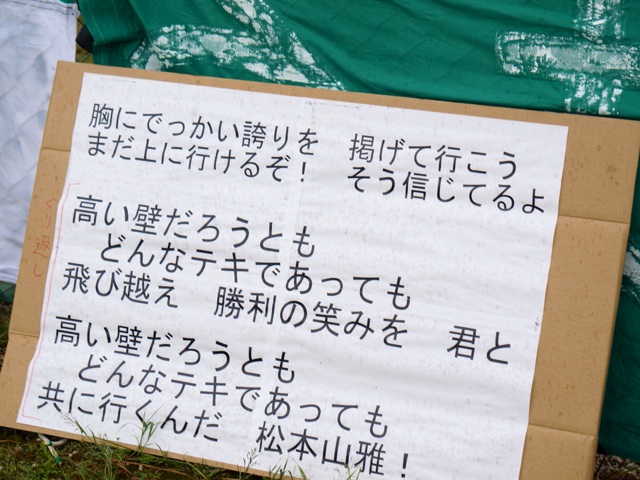 胸にでっかい誇りを　掲げて行こう
まだ上に行けるぞ！　そう信じてるよ
くり返し
高い壁だろうとも
どんなテキであっても
飛び越え　勝利の笑みを　君と
高い壁だろうとも
どんなテキであっても
共に行くんだ　松本山雅！